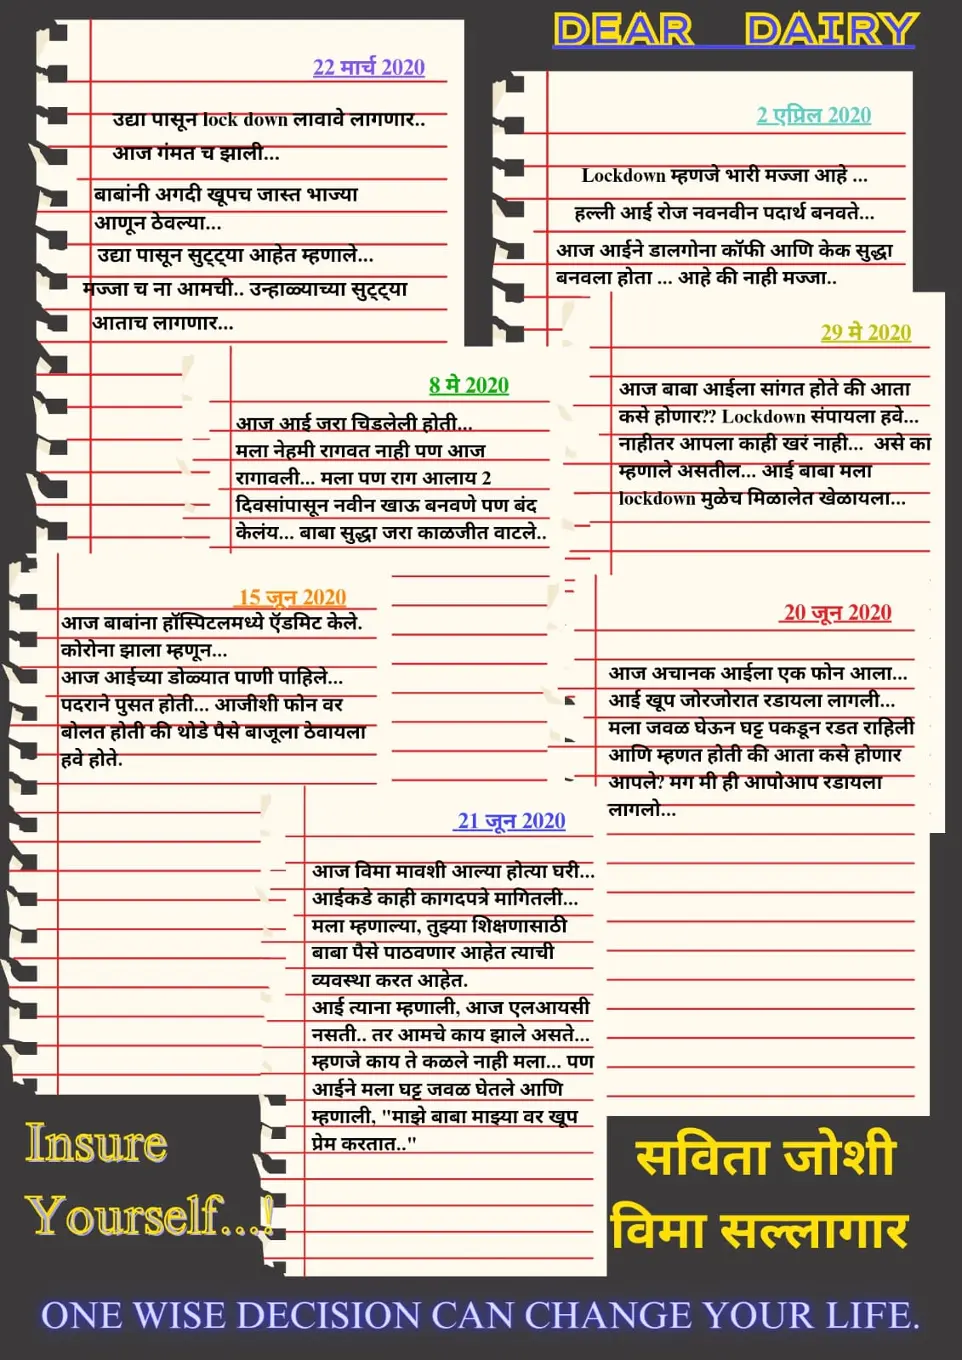 DEAR DAIRY
22 मार्च 2020
उद्या पासून lock down लावावे लागणार..
आज गंमत च झाली...
बाबांनी अगदी खूपच जास्त भाज्या
आणून ठेवल्या...
उद्या पासून सुट्ट्या आहेत म्हणाले...
मज्जा च ना आमची.. उन्हाळ्याच्या सुट्ट्या
आताच लागणार...
2 एप्रिल 2020
Lockdown म्हणजे भारी मज्जा आहे ...
हल्ली आई रोज नवनवीन पदार्थ बनवते...
आज आईने डालगोना कॉफी आणि केक सुद्धा
बनवला होता ... आहे की नाही मज्जा..
8 मे 2020
आज आई जरा चिडलेली होती...
मला नेहमी रागवत नाही पण आज
रागावली... मला पण राग आलाय 2
दिवसांपासून नवीन खाऊ बनवणे पण बंद
केलंय... बाबा सुद्धा जरा काळजीत वाटले..
29 मे 2020
आज बाबा आईला सांगत होते की आता
कसे होणार?? Lockdown संपायला हवे...
नाहीतर आपला काही खरं नाही... असे का
म्हणाले असतील... आई बाबा मला
lockdown मुळेच मिळालेत खेळायला...
15 जून 2020
आज बाबांना हॉस्पिटलमध्ये ऍडमिट केले.
कोरोना झाला म्हणून...
आज आईच्या डोळ्यात पाणी पाहिले...
पदराने पुसत होती... आजीशी फोन वर
बोलत होती की थोडे पैसे बाजूला ठेवायला
हवे होते.
20 जून 2020
आज अचानक आईला एक फोन आला...
आई खूप जोरजोरात रडायला लागली...
मला जवळ घेऊन घट्ट पकडून रडत राहिली
आणि म्हणत होती की आता कसे होणार
आपले? मग मी ही आपोआप रडायला
लागलो...
21 जून 2020
आज विमा मावशी आल्या होत्या घरी...
आईकडे काही कागदपत्रे मागितली...
मला म्हणाल्या, तुझ्या शिक्षणासाठी
बाबा पैसे पाठवणार आहेत त्याची
व्यवस्था करत आहेत.
आई त्याना म्हणाली, आज एलआयसी
नसती.. तर आमचे काय झाले असते...
म्हणजे काय ते कळले नाही मला... पण
आईने मला घट्ट जवळ घेतले आणि
म्हणाली, "माझे बाबा माझ्या वर खूप
प्रेम करतात.."
Insure
Yourself...!
सविता जोशी
विमा सल्लागार
ONE WISE DECISION CAN CHANGE YOUR LIFE.